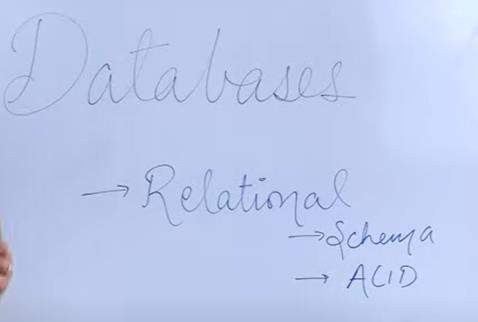 Databases
→ Relational
→ Schema
→ ACID